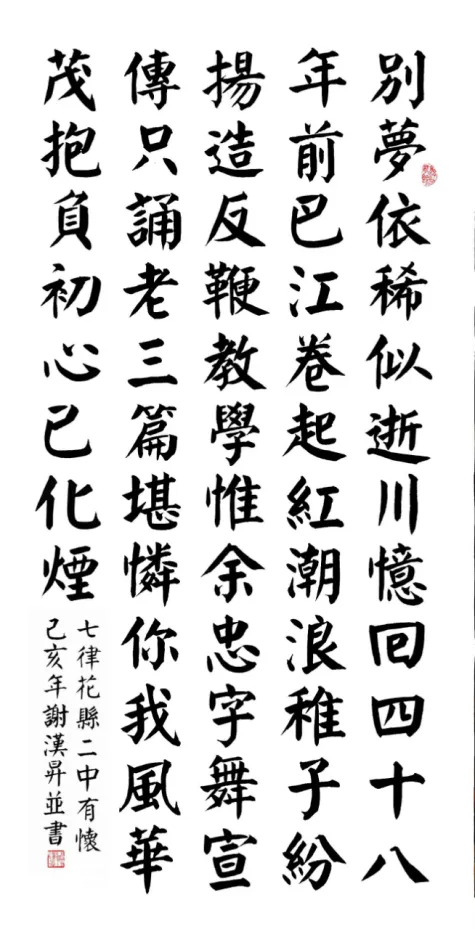 別夢依稀似逝川憶回四十八
年前巴江卷起紅潮浪稚子紛
揚造反鞭教學惟余忠字舞宣
傳只誦老三篇堪憐你我風華
茂抱負初心已化煙
七律花縣二中有懷
己亥年謝漢昇並書